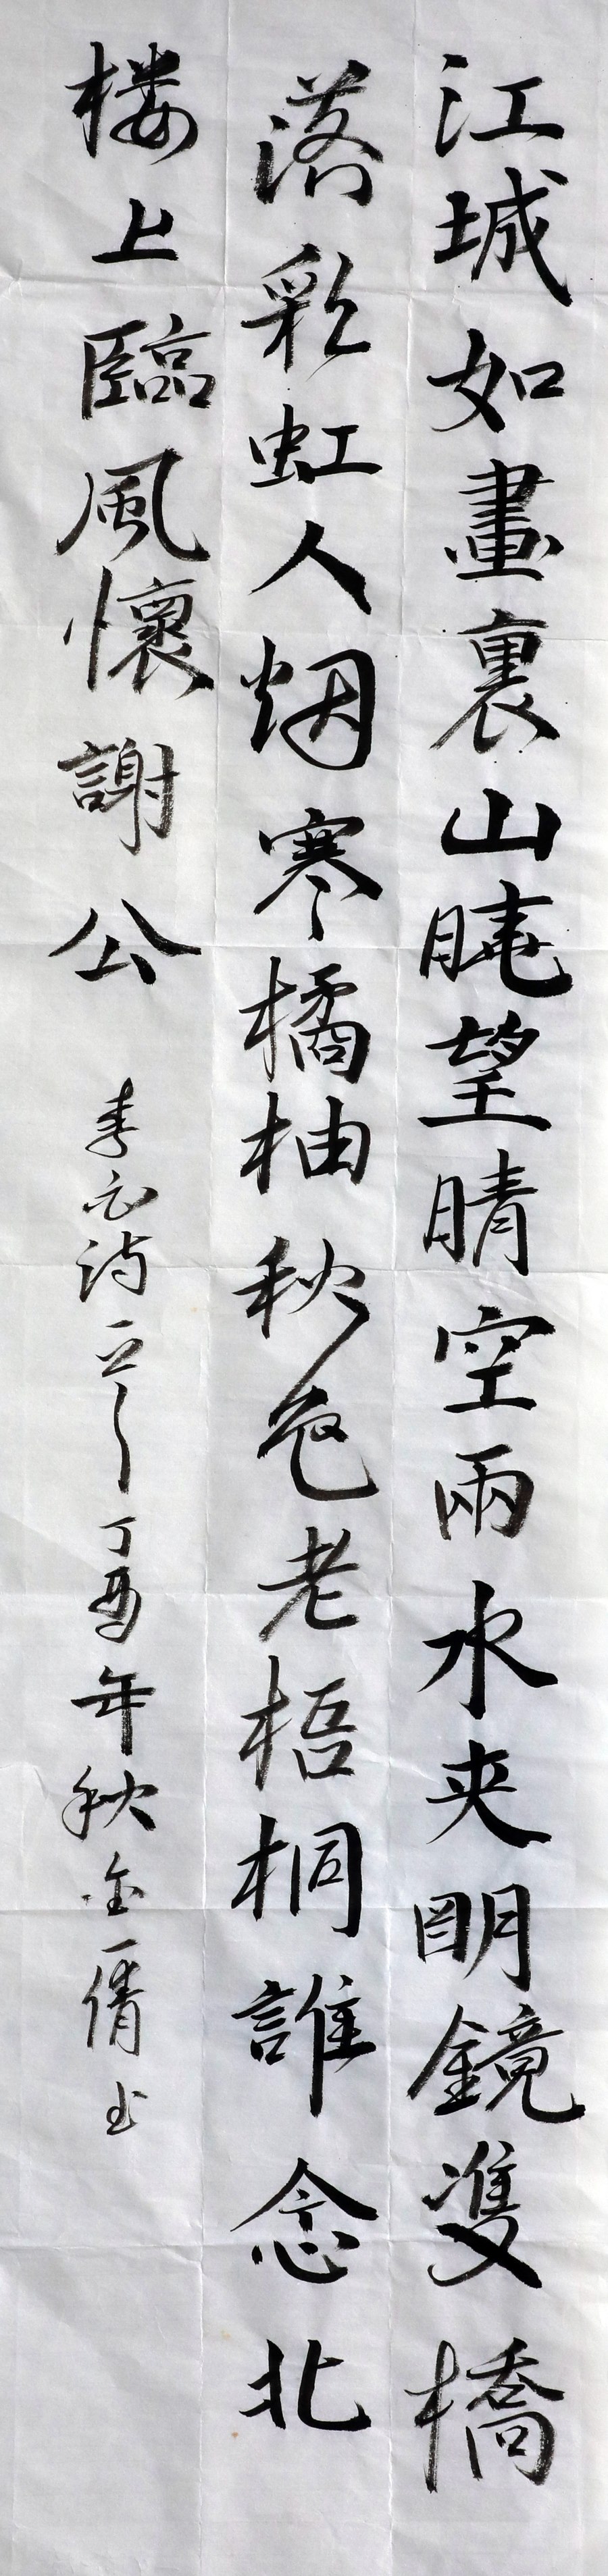 江城如畫裏山晓望晴空兩水夾明鏡雙橋
落彩虹人烟寒橘柚秋色老梧桐誰念北
楼上臨風懷謝公 李白诗一首 丁酉年秋金倩书